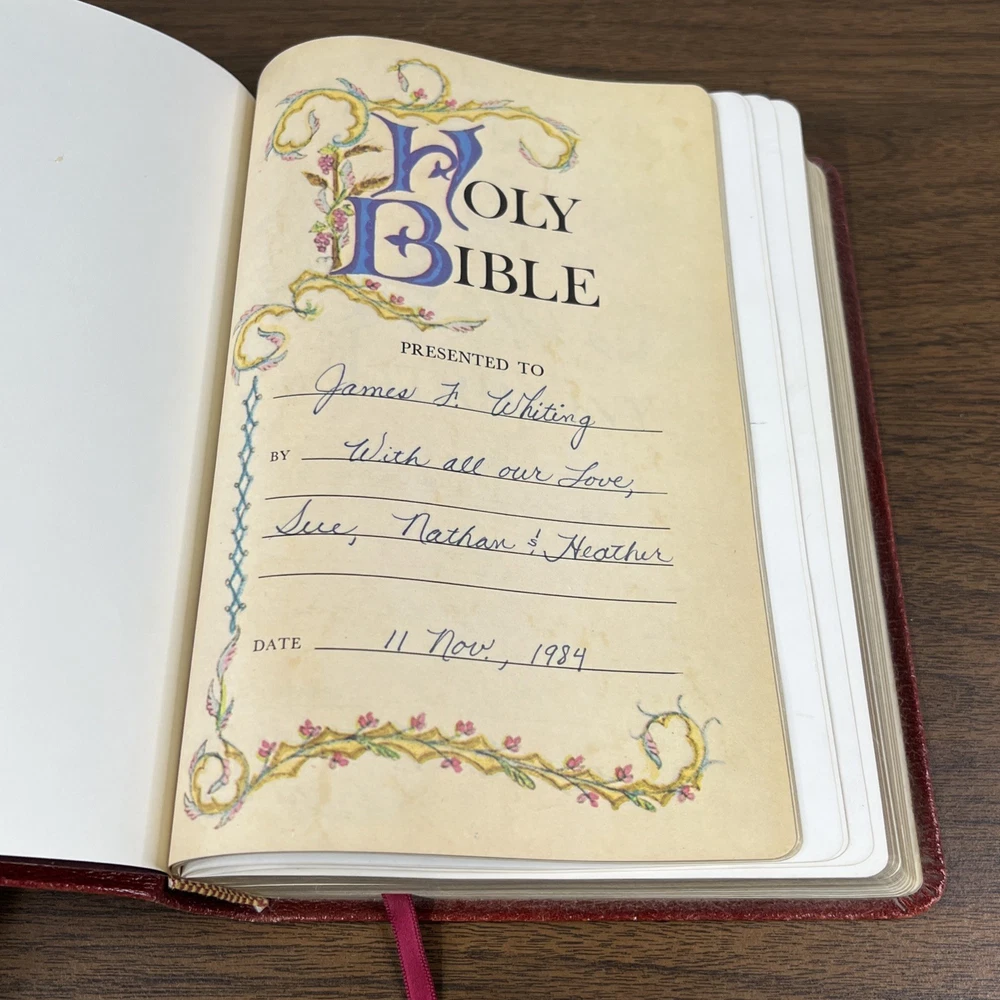 HOLY
BIBLE
PRESENTED TO
James F. Whiting
BY With all our Love,
Sue, Nathan & Heather
DATE 11 Nov., 1984